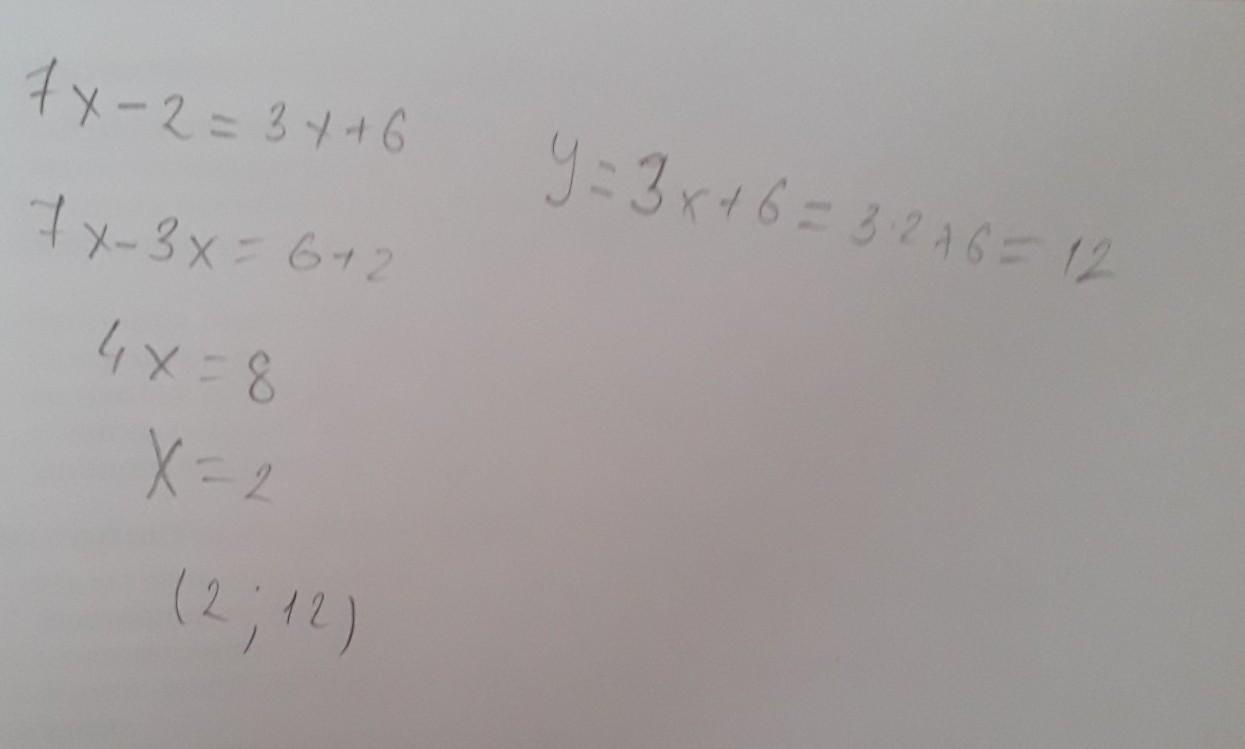 7x-2=3x+6
7x-3x=6+2
4x=8
x=2
(2;12)
y=3x+6=3·2+6=12